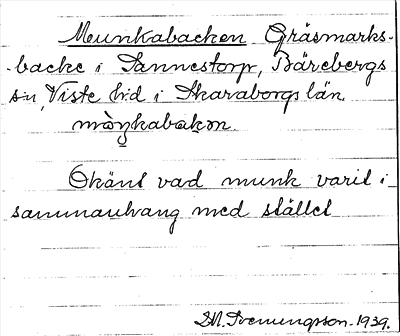 Munkabacken Gräsmarks-
backe i Jannestorp, Bärebergs
sn, Viste hd i Skaraborgs län.
màŋkabakən
Okänt vad munk varit i
sammanhang med stället
1939.